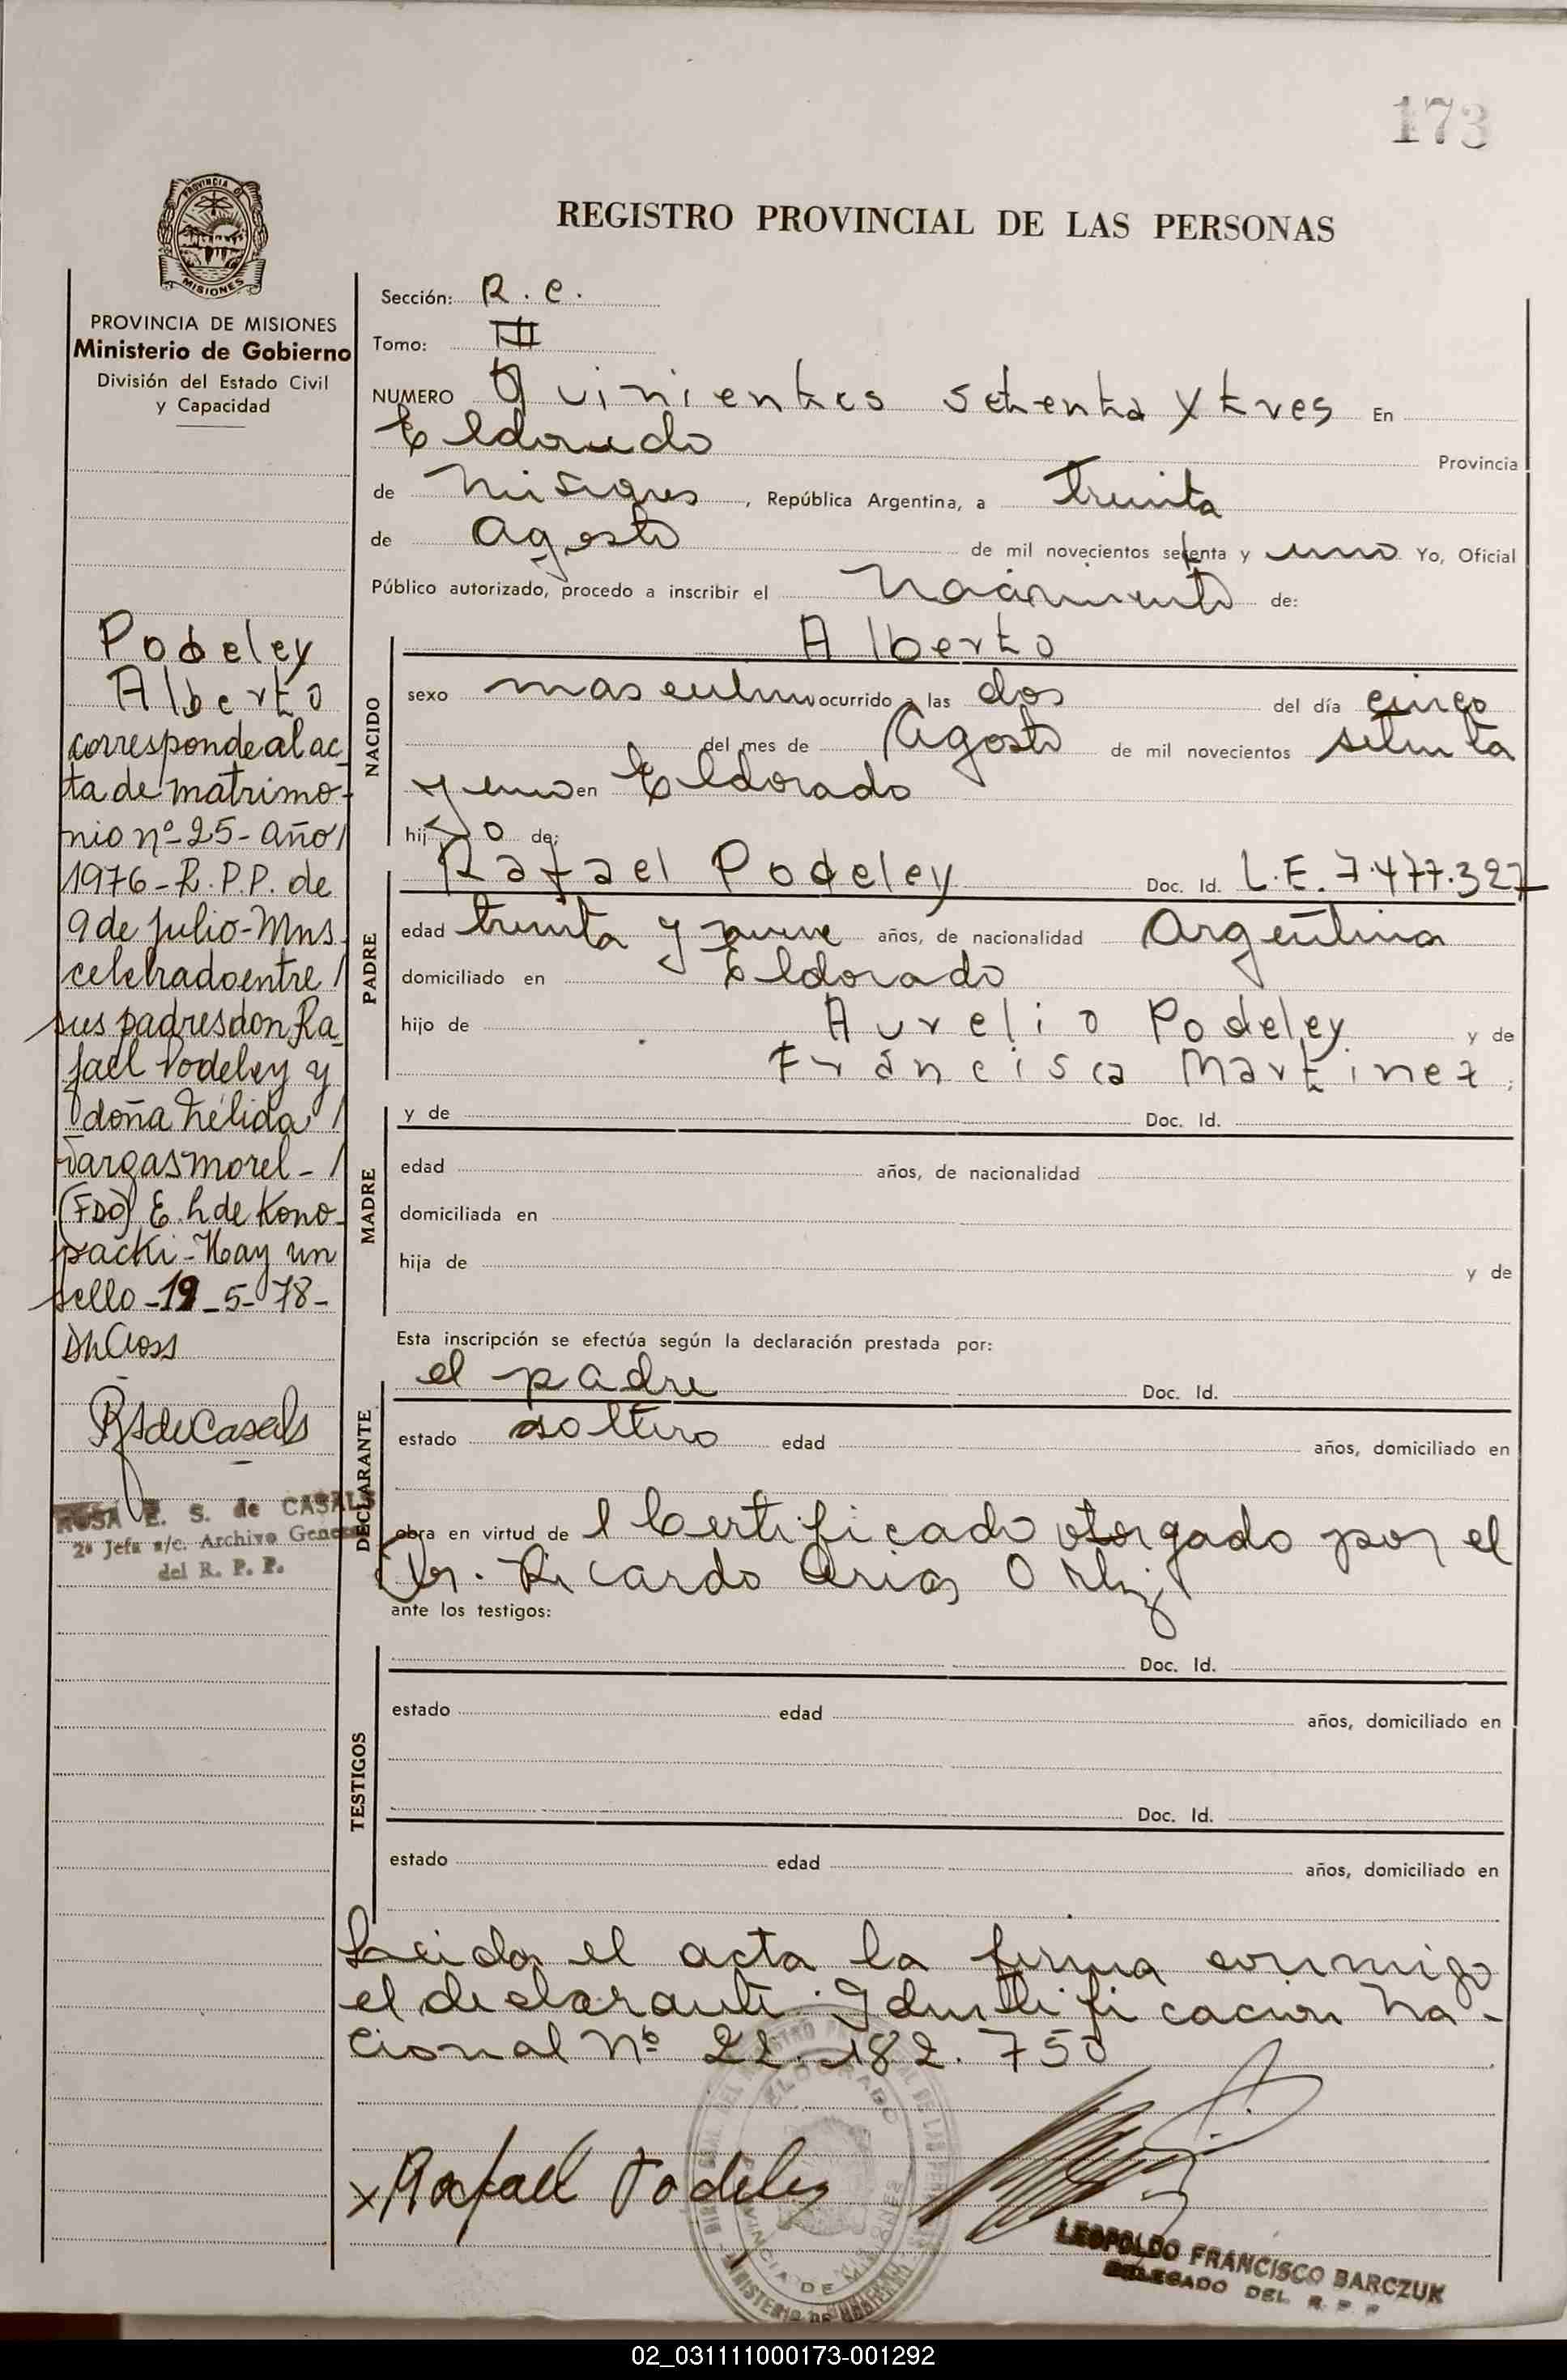 173
REGISTRO PROVINCIAL DE LAS PERSONAS
PROVINCIA DE MISIONES
Ministerio de Gobierno
División del Estado Civil
y Capacidad
Podeley
Alberto
corresponde al ac-
ta de matrimo-
nio nº 25 - año /
1976 - R.P.P. de
9 de Julio - Mns.
celebrado entre /
sus padres don Ra-
fael Podeley y
doña Nélida /
Vargas Morel - /
(FDO) E. h de Kono-
packi - Hay un
sello - 19 - 5 - 78 -
RSdeCasals
ROSA E. S. de CASALS
2ª Jefa a/c. Archivo General
del R. P. P.
Sección: R. C.
Tomo: III
NUMERO Quinientos setenta y tres En
Eldorado Provincia
de Misiones, República Argentina, a treinta
de Agosto de mil novecientos setenta y uno Yo, Oficial
Público autorizado, procedo a inscribir el nacimiento de:
NACIDO
Alberto
sexo masculino ocurrido a las dos del día cinco
del mes de Agosto de mil novecientos setenta
y uno en Eldorado
hijo de:
PADRE
Rafael Podeley Doc. Id. L.E. 7.477.327
edad treinta y nueve años, de nacionalidad Argentina
domiciliado en Eldorado
hijo de Aurelio Podeley y de
Francisca Martinez;
MADRE
y de Doc. Id.
edad años, de nacionalidad
domiciliada en
hija de y de
Esta inscripción se efectúa según la declaración prestada por:
DECLARANTE
el padre Doc. Id.
estado soltero edad años, domiciliado en
obra en virtud de l Certificado otorgado por el
Dr. Ricardo Arias Ortiz
ante los testigos:
TESTIGOS
Doc. Id.
estado edad años, domiciliado en
Doc. Id.
estado edad años, domiciliado en
Leida el acta la firma conmigo
el declarante. Identificacion Na-
cional Nº 22.182.750
x Rafael Podeley
ELDORADO
PROVINCIA DE MISIONES
LEOPOLDO FRANCISCO BARCZUK
DELEGADO DEL R. P. P
02_031111000173-001292